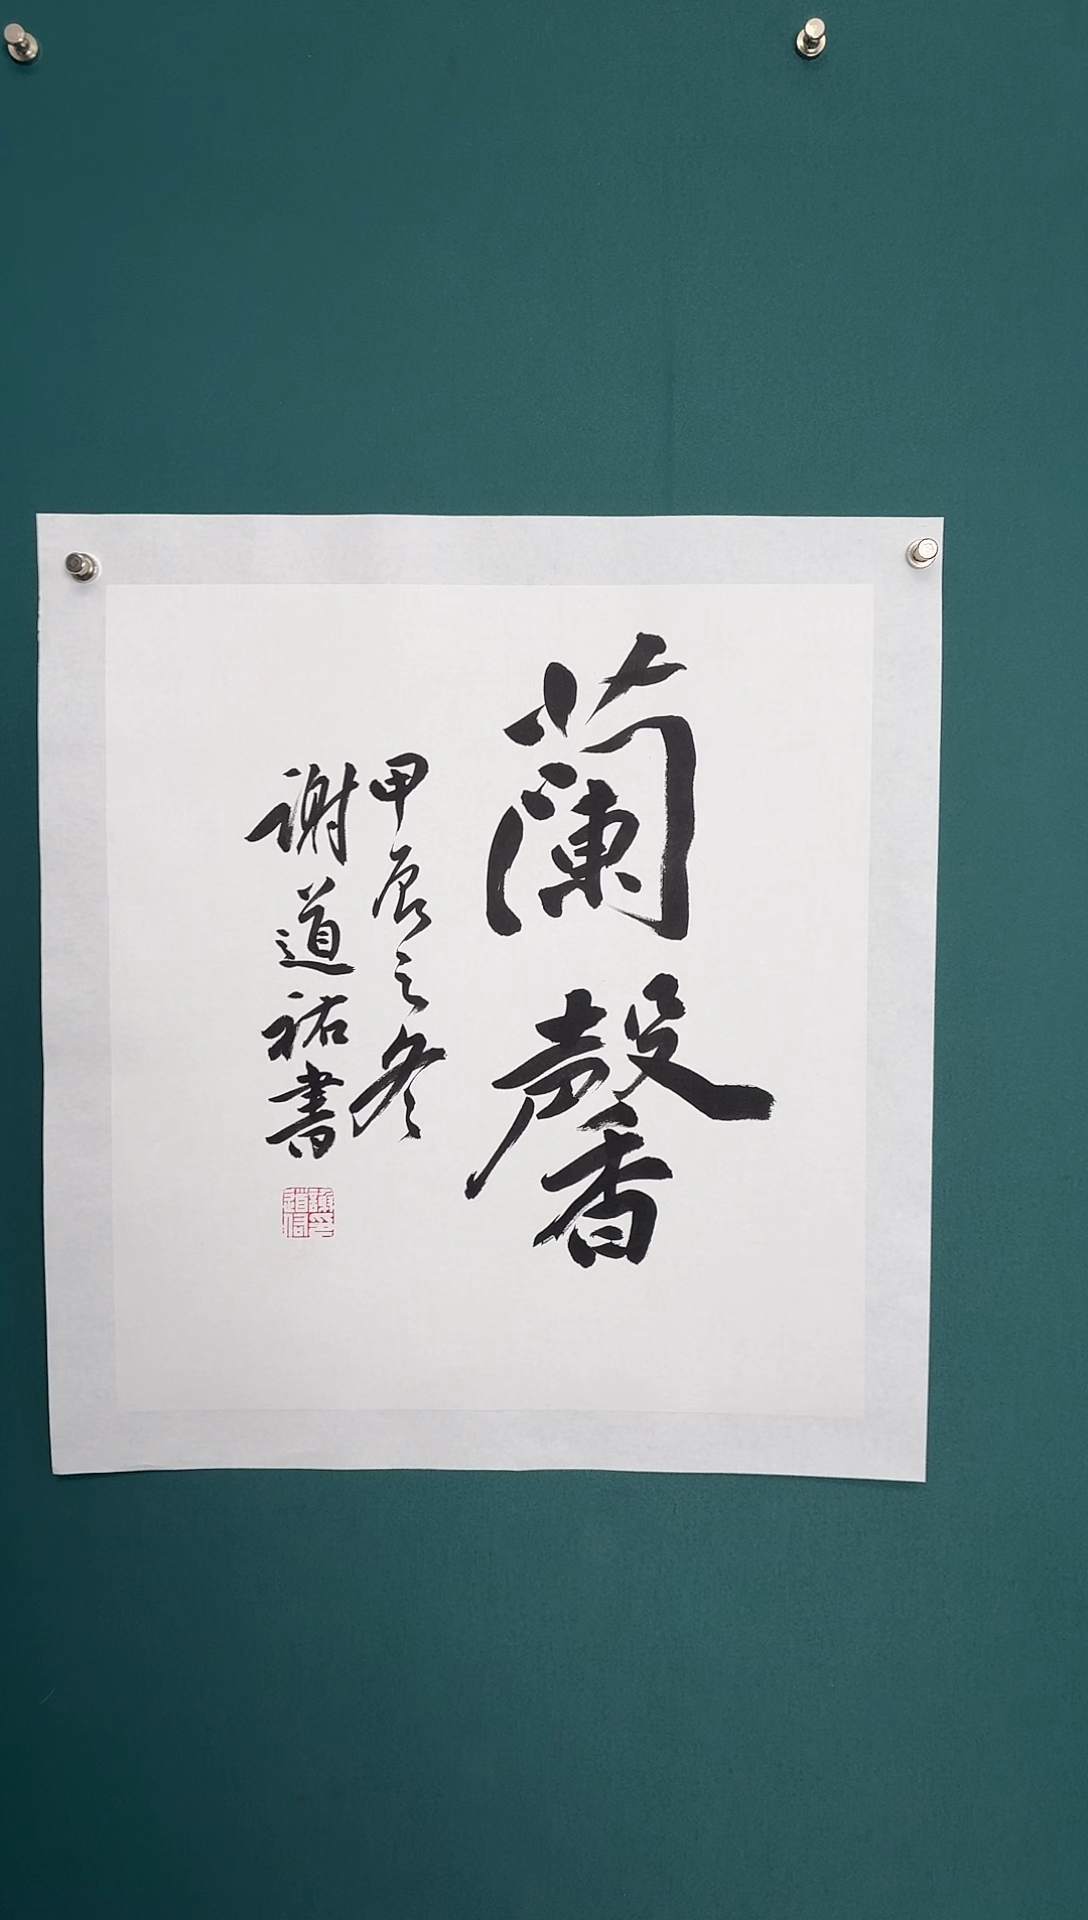 蘭馨
甲辰之冬
謝道祐書